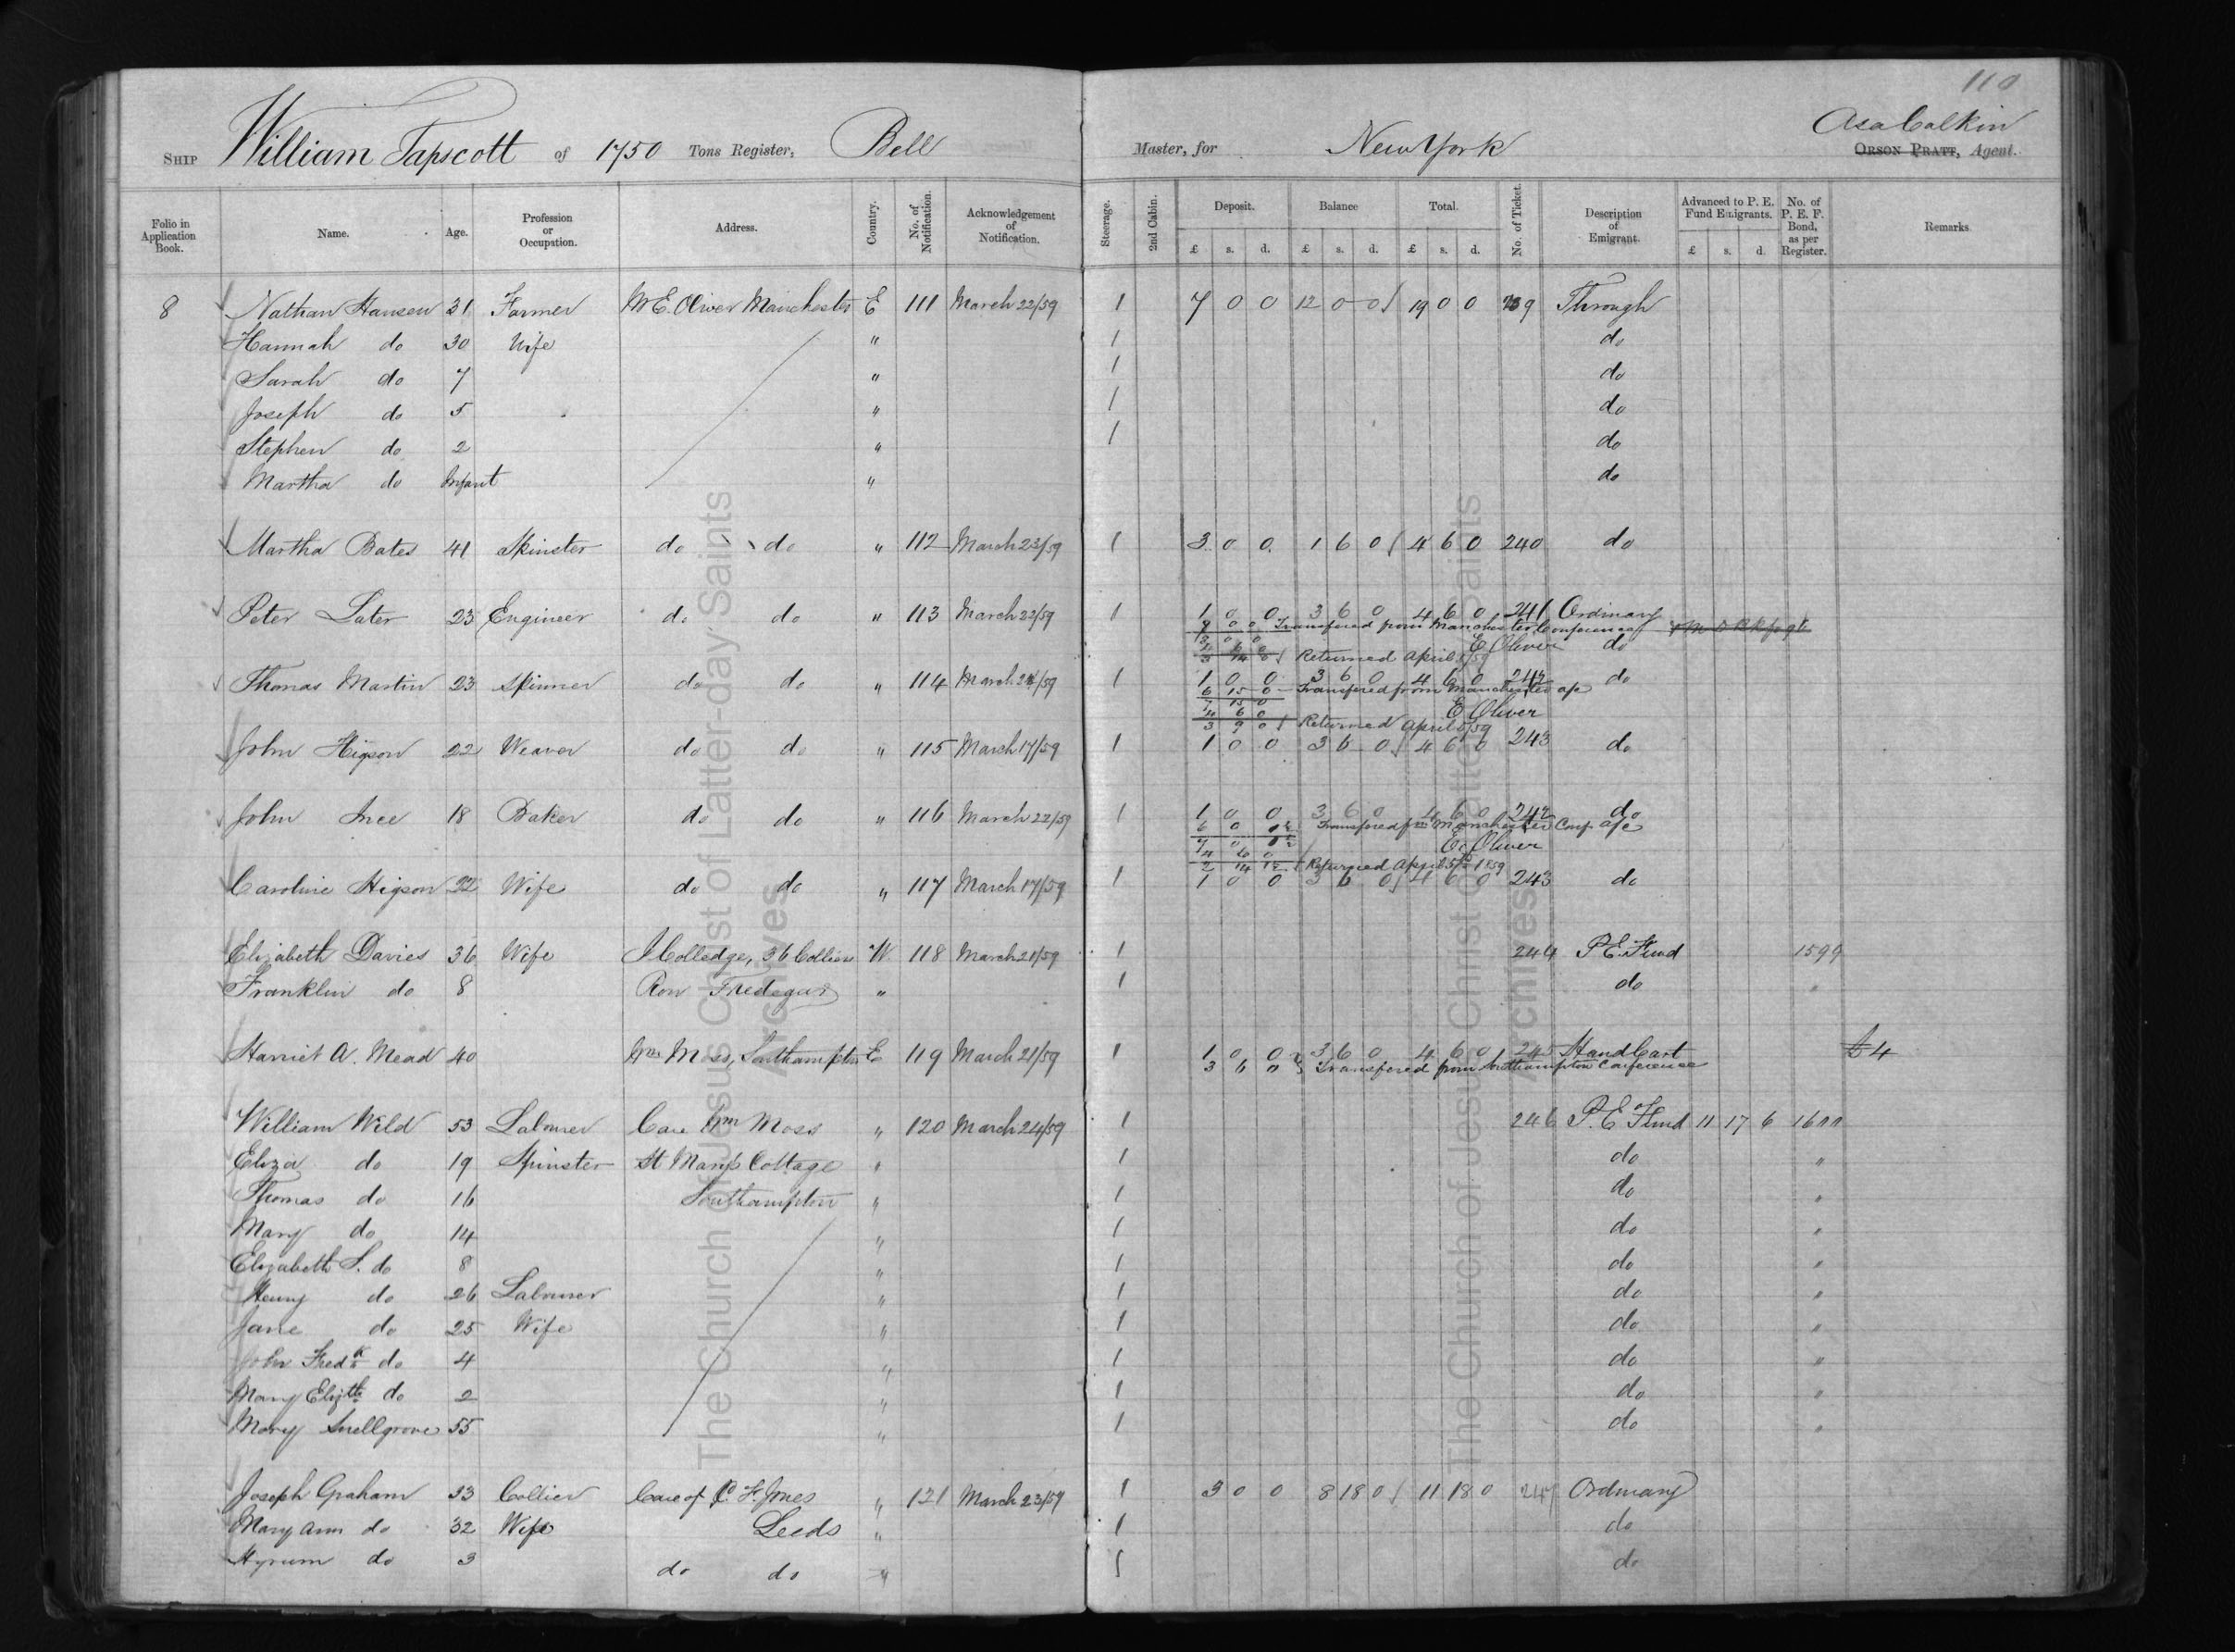 110
Asa Calkin
SHIP William Tapscott of 1750 Tons Register, Bell Master, for New York ORSON PRATT, Agent.
Folio in Application Book. Name. Age. Profession or Occupation. Address. Country. No. of Notification. Acknowledgement of Notification. Steerage. 2nd Cabin. Deposit. Balance Total. No. of Ticket. Description of Emigrant. Advanced to P. E. Fund Emigrants. No. of P. E. F. Bond, as per Register. Remarks
£ s. d. £ s. d. £ s. d. £ s. d.
8 Nathan Hansen 31 Farmer Mr E. Oliver Manchester E 111 March 22/59 1 7 0 0 12 0 0 19 0 0 239 Through
Hannah do 30 Wife " 1 do
Sarah do 7 " 1 do
Joseph do 5 " 1 do
Stephen do 2 " 1 do
Martha do Infant " do
Martha Bates 41 Spinster do do " 112 March 23/59 1 3 0 0 1 6 0 4 6 0 240 do
Peter Later 23 Engineer do do " 113 March 22/59 1 1 0 0 3 6 0 4 6 0 241 Ordinary
0 0 Transfered from Manchester Conference
E Oliver do
Returned April /59
Thomas Martin 23 Spinner do do " 114 March 24/59 1 1 0 0 3 6 0 4 6 0 242 do
6 15 0 Transfered from Manchester a/c
7 15 0
4 6 0 E Oliver
3 9 0 Returned April /59
John Higson 22 Weaver do do " 115 March 17/59 1 1 0 0 3 6 0 4 6 0 243 do
John Ince 18 Baker do do " 116 March 22/59 1 1 0 0 3 6 0 4 6 0 242 do
6 0 Transfered fm Manchester Conf a/c
7 0
4 6 0 E. Oliver
2 14 Returned April 5th 1859
Caroline Higson 22 Wife do do " 117 March 17/59 1 1 0 0 3 6 0 4 6 0 243 do
Elizabeth Davies 36 Wife J Colledge, 36 Colliers W 118 March 21/59 1 244 P. E. Fund 1599
Franklin do 8 Row Tredegar " 1 do "
Harriet A. Mead 40 Wm Moss, Southampton E 119 March 21/59 1 1 0 0 3 6 0 4 6 0 245 Hand Cart £4
3 6 0 Transfered from Southampton Conference
William Wild 53 Labourer Care Wm Moss " 120 March 24/59 1 246 P. E. Fund 11 17 6 1600
Eliza do 19 Spinster St Mary's Cottage " 1 do "
Thomas do 16 Southampton " 1 do "
Mary do 14 " 1 do "
Elizabeth S. do 8 " 1 do "
Henry do 26 Labourer " 1 do "
Jane do 25 Wife " 1 do "
John Fredk do 4 " 1 do "
Mary Elizth do 2 " 1 do "
Mary Snellgrove 55 " 1 do "
Joseph Graham 33 Collier Care of C. F. Jones " 121 March 23/59 1 3 0 0 8 18 0 11 18 0 247 Ordinary
Mary Ann do 32 Wife Leeds " 1 do
Hyrum do 3 do do " 1 do
The Church of Jesus Christ of Latter-day Saints
Archives
The Church of Jesus Christ of Latter-day Saints
Archives